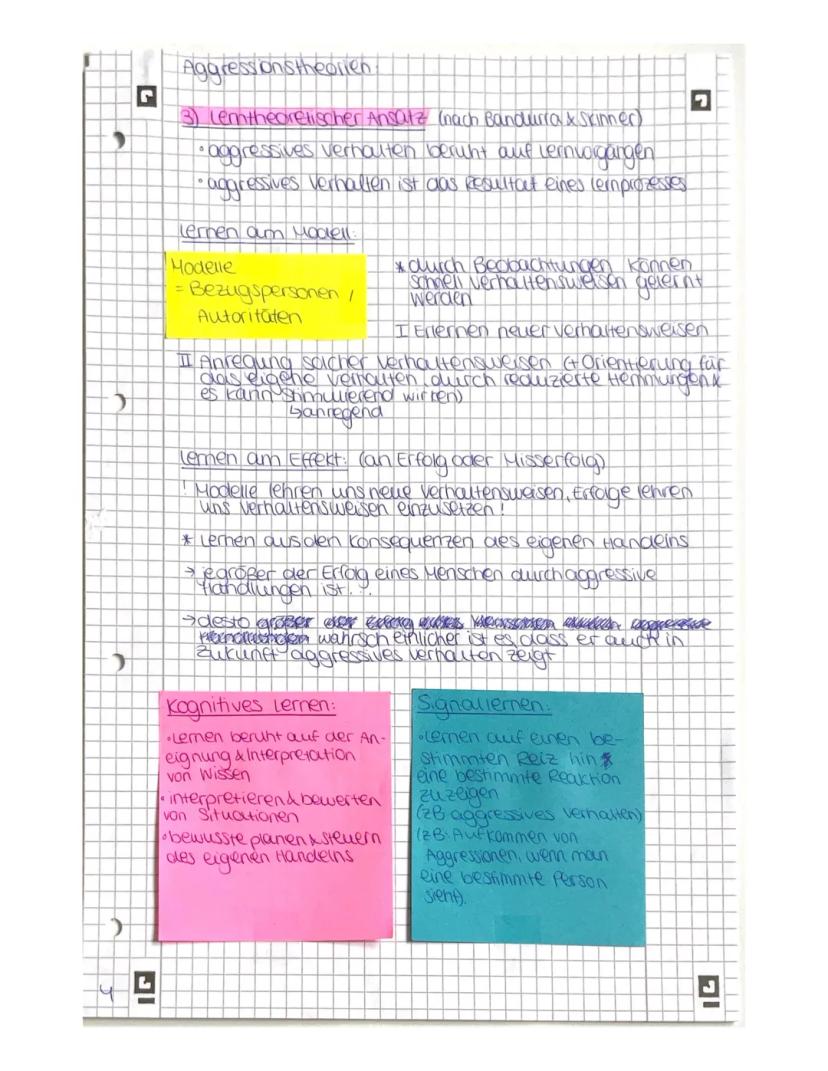 Aggressionstheorien:
3) Lerntheoretischer Ansatz (nach Bandurra & Skinner)
• aggressives Verhalten beruht auf Lernvorgängen
• aggressives Verhalten ist das Resultat eines Lernprozesses
Lernen am Modell:
Modelle
= Bezugspersonen /
Autoritäten
* durch Beobachtungen können
schnell Verhaltensweisen gelernt
werden
I Erlernen neuer Verhaltensweisen
II Anregung solcher Verhaltensweisen (+ Orientierung für
das eigene Verhalten, durch reduzierte Hemmungen &
es kann stimulierend wirken)
↳ anregend
Lernen am Effekt: (an Erfolg oder Misserfolg)
! Modelle lehren uns neue Verhaltensweisen, Erfolge lehren
uns Verhaltensweisen einzusetzen!
* Lernen aus den Konsequenzen des eigenen Handelns
→ je größer der Erfolg eines Menschen durch aggressive
Handlungen ist...
→ desto
wahrscheinlicher ist es, dass er auch in
Zukunft aggressives Verhalten zeigt
Kognitives Lernen:
• Lernen beruht auf der An-
eignung & Interpretation
von Wissen
• interpretieren & bewerten
von Situationen
• bewusste planen & steuern
des eigenen Handelns
Signallernen:
• Lernen auf einen be-
stimmten Reiz hin
eine bestimmte Reaktion
zu zeigen
(zB aggressives Verhalten)
(zB: Aufkommen von
Aggressionen, wenn man
eine bestimmte Person
sieht).
4